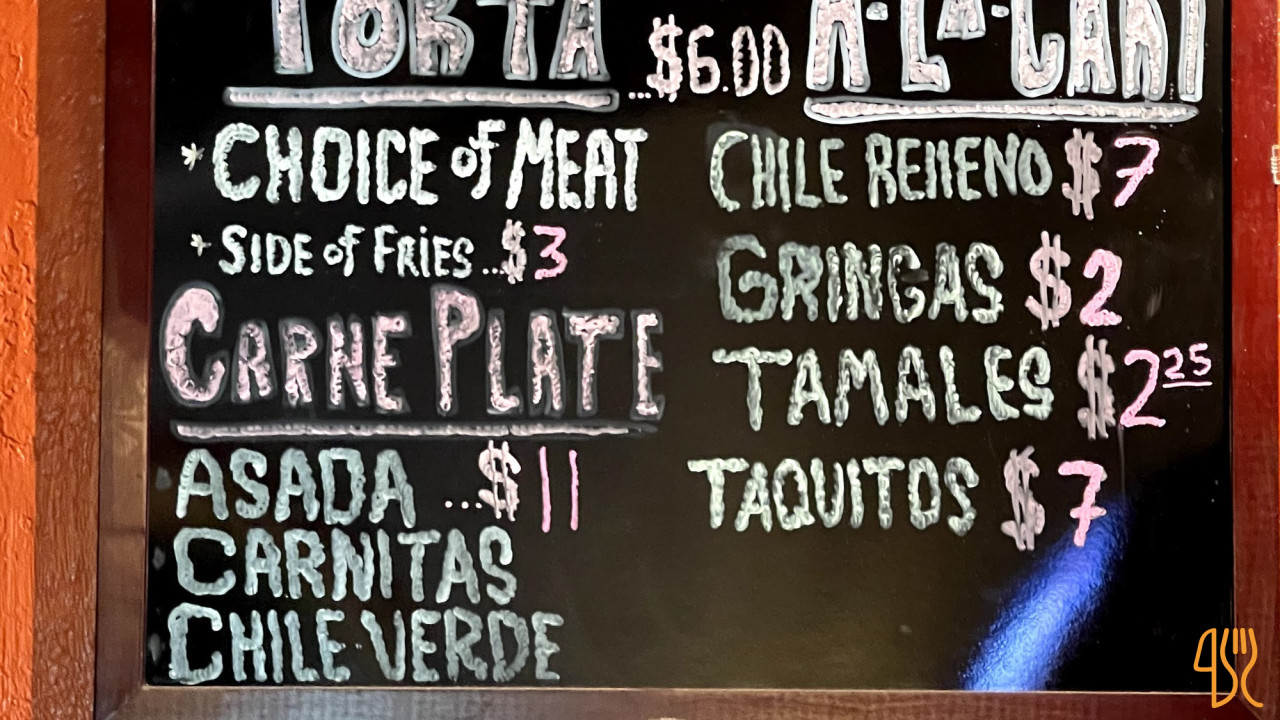 TORTA ...$6.00
* CHOICE of MEAT
* SIDE of FRIES ...$3
CARNE PLATE
ASADA ...$11
CARNITAS
CHILE VERDE
A-LA-CART
CHILE RELLENO $7
GRINGAS $2
TAMALES $2 25
TAQUITOS $7